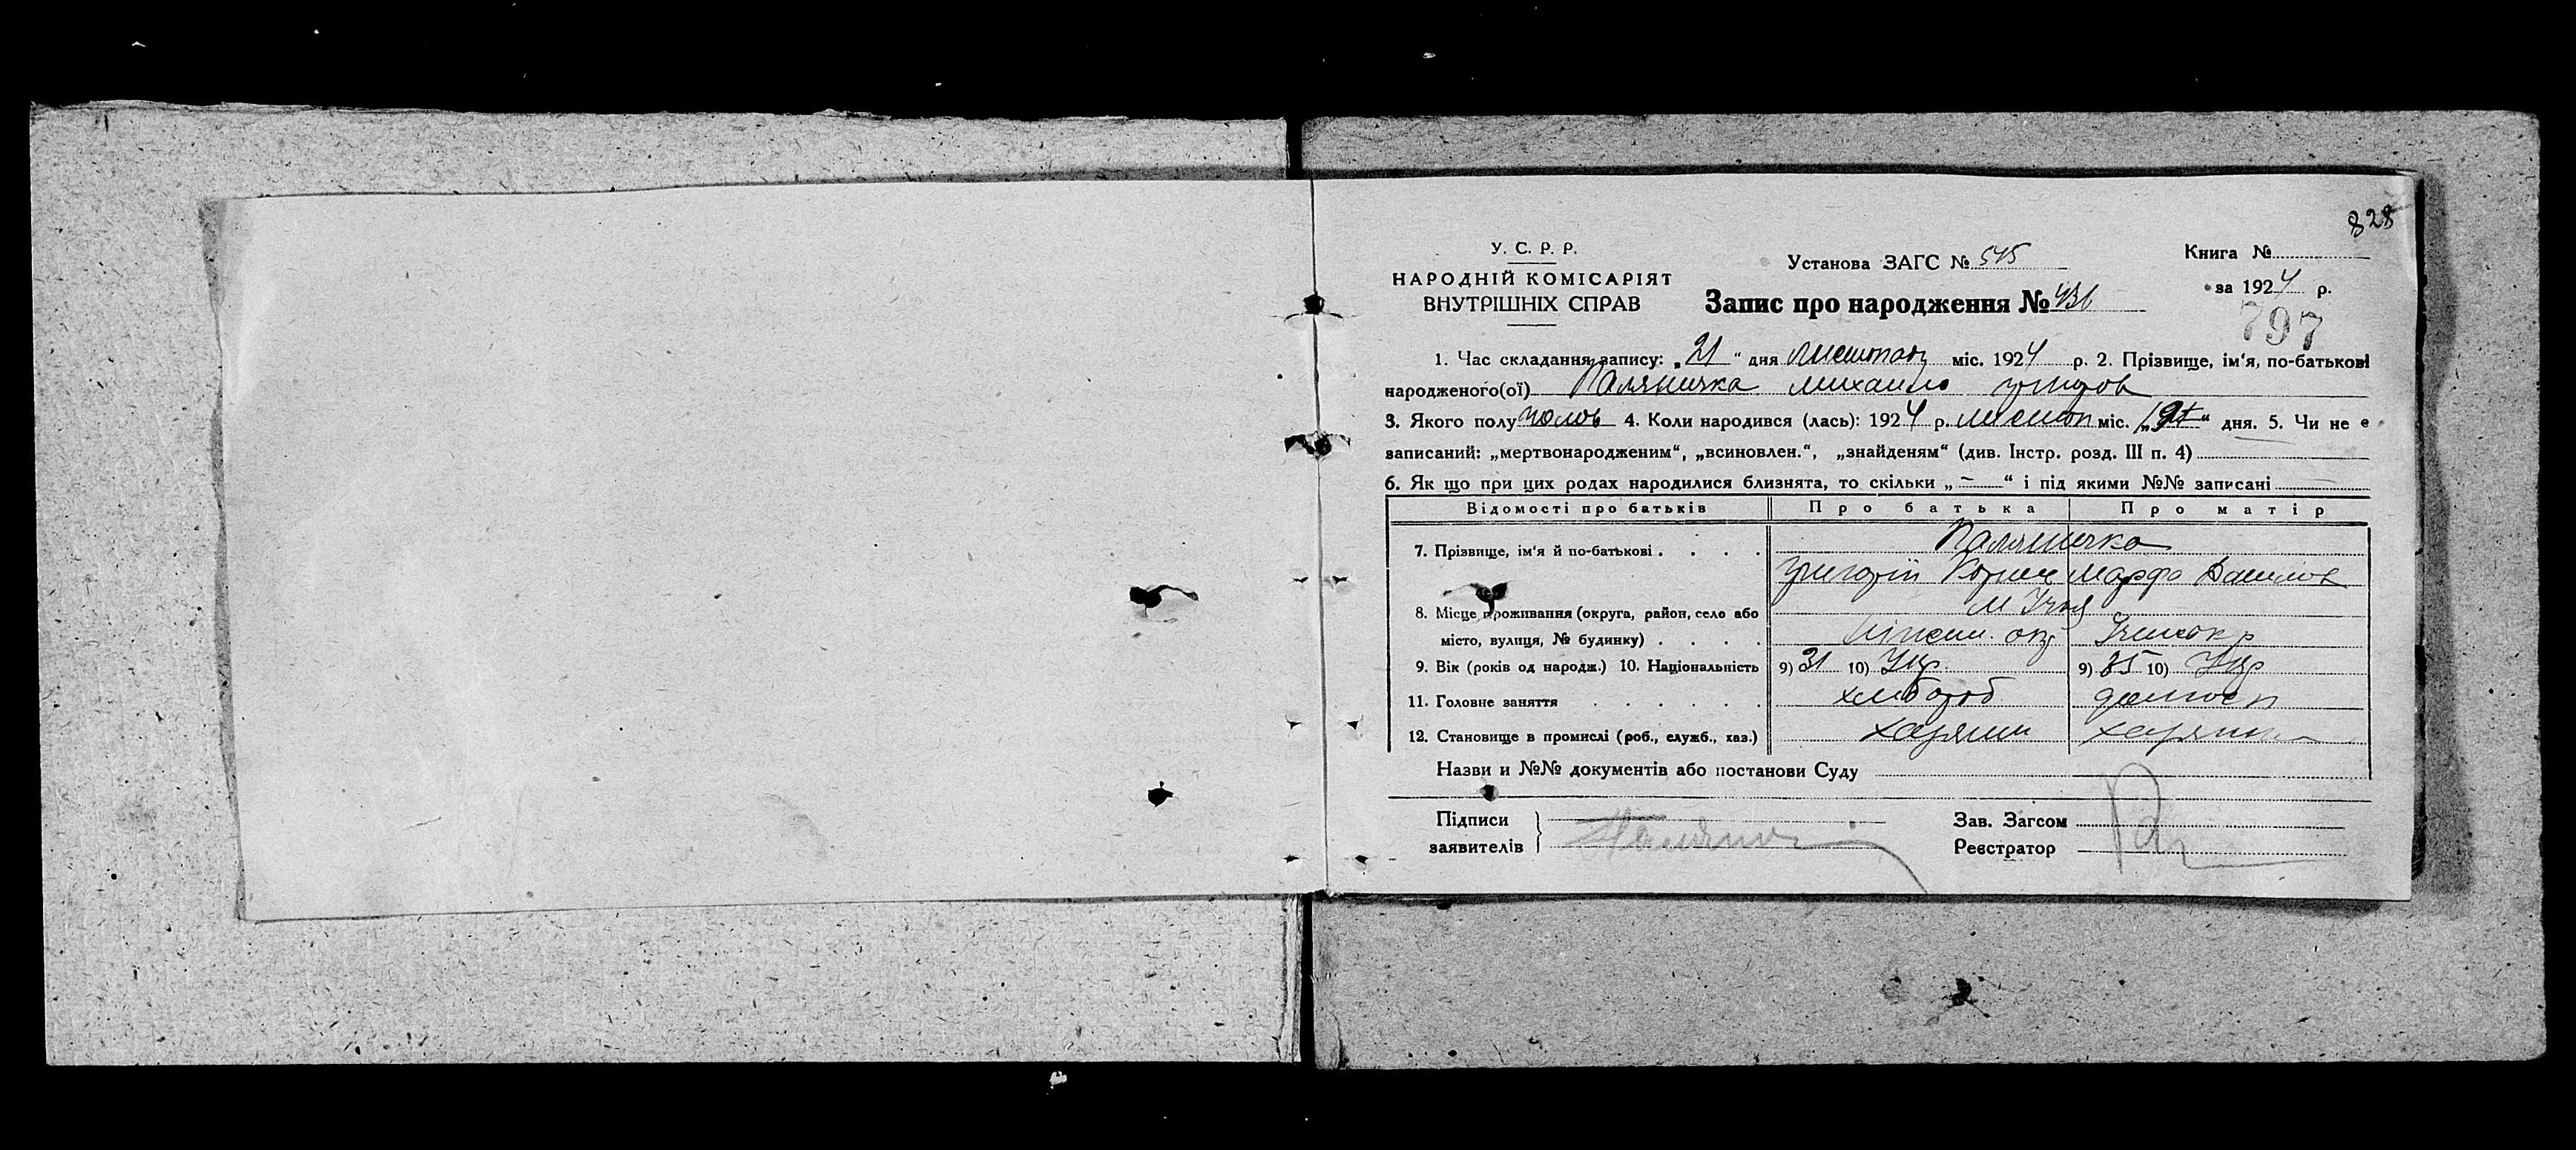 828
У. С. Р. Р.
НАРОДНІЙ КОМІСАРІЯТ
ВНУТРІШНІХ СПРАВ
Установа ЗАГС № 545
Книга №
за 1924 р.
Запис про народження №
797
1. Час складання запису: „21“ дня листопад міс. 1924 р. 2. Прізвище, ім'я, по-батькові
народженого(ої) Паляничка Михаило григоров
3. Якого полу чолов 4. Коли народився (лась): 1924 р. листоп міс. дня. 5. Чи не є
записаний: „мертвонародженим“, „всиновлен.“, „знайденям“ (див. Інстр. розд. III п. 4)
6. Як що при цих родах народилися близнята, то скільки „—“ і під якими №№ записані
Відомості про батьків Про батька Про матір
7. Прізвище, ім'я й по-батькові . . . . Паляничка
Григорій Марфа
8. Місце проживання (округа, район, село або
місто, вулиця, № будинку) . . . . окр
9. Вік (років од народж.) 10. Національність 9) 31 10) Укр. 9) 10) Укр
11. Головне заняття . . . . . . хлібороб домгосп
12. Становище в промислі (роб., служб., хаз.) хазяин хазяика
Назви и №№ документів або постанови Суду
Підписи
заявителів
Зав. Загсом
Реєстратор